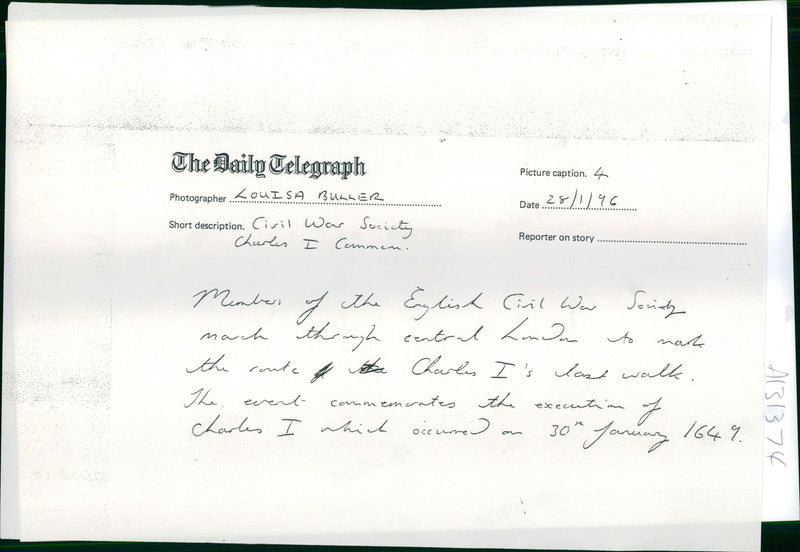 The Daily Telegraph
Picture caption. 4
Photographer LOUISA BULLER
Date 28/1/96
Short description. Civil War Society
Charles I Commem.
Reporter on story
Members of the English Civil War Society
march through central London to mark
the route of the Charles I's last walk.
The event commemorates the execution of
Charles I which occurred on 30th January 1649.
A131374